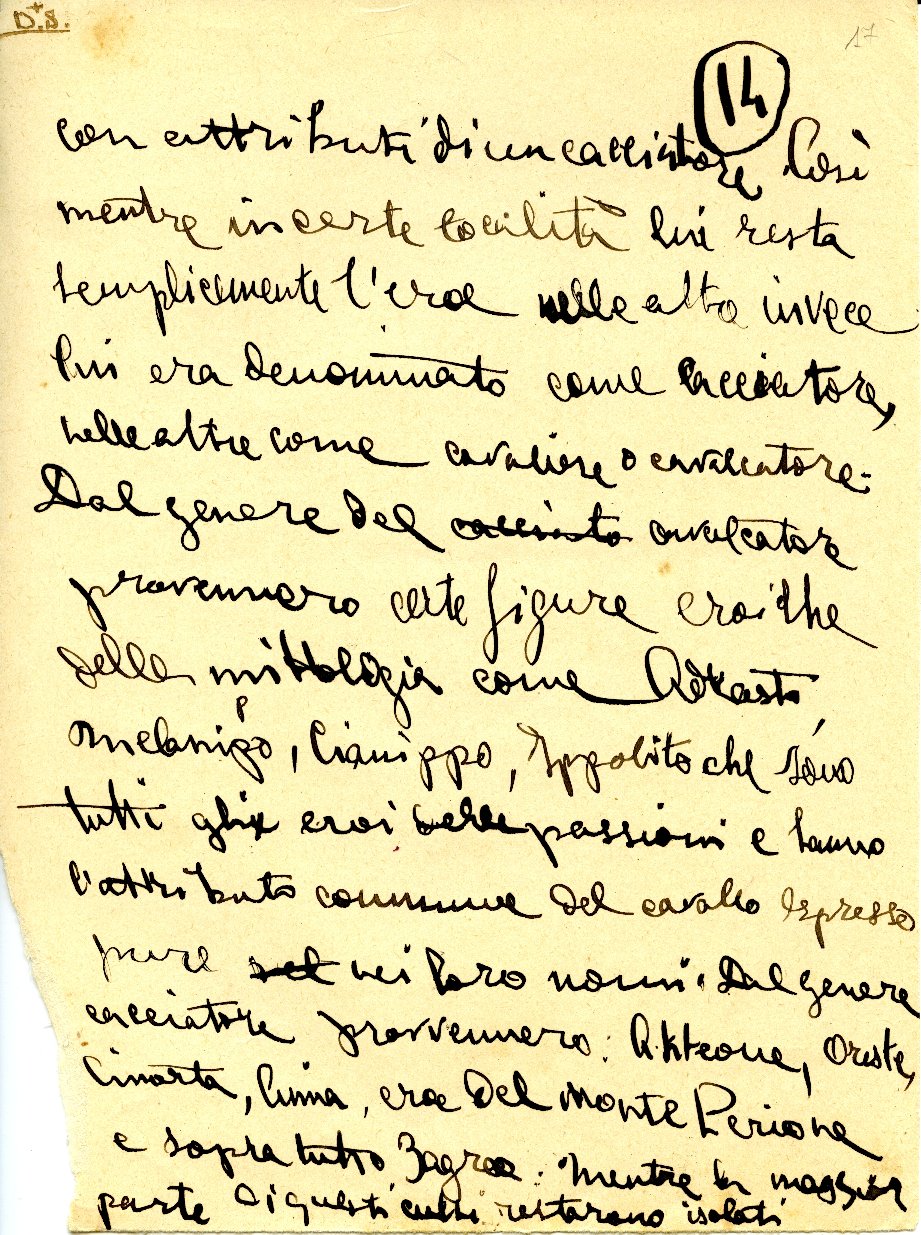 D+S.
17
14
con attributi di un cacciatore. Così
mentre in certe località lui resta
semplicemente l'eroe nelle altre invece
lui era denominato come cacciatore,
nelle altre come cavaliere o cavalcatore.
Dal genere del cacciato cavalcatore
provennero certe figure eroiche
della mitologia come Adrasto
Melanippo, Cianippo, Ippolito che sono
tutti gli eroi delle passioni e hanno
l'attributo commune del cavallo espresso
pure nei loro nomi. Dal genere
cacciatore provvennero: Akteone, Oreste,
eroe del Monte Perione
e sopra tutto Zagreo. Mentre la maggior
parte di questi culti restarono isolati